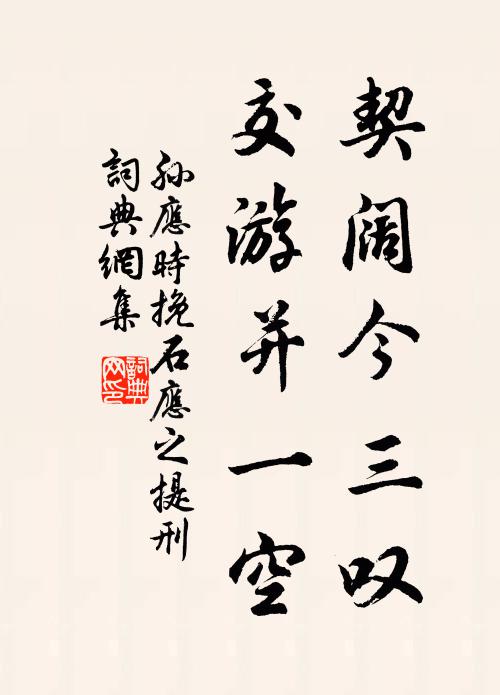 契阔今三叹
交游并一空
孙應時挽石應之提刑
詞典網集
詞典网印